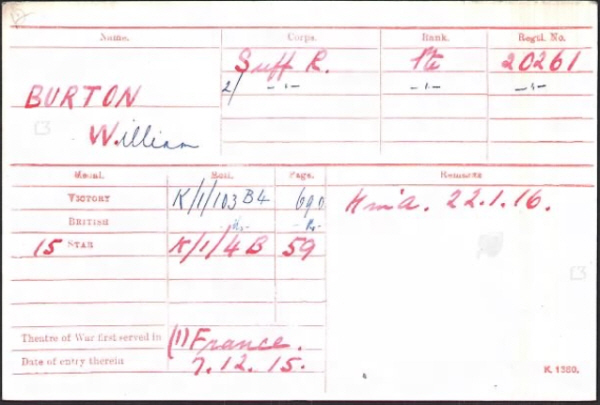 Name. Corps. Rank. Regtl. No.
Suff R. Pte 20261
BURTON 2/ -,,- -,,- -,,-
William
Medal. Roll. Page. Remarks
VICTORY K/1/103 B4 690 K in a. 22.1.16.
BRITISH -do- -do-
15 STAR K/1/4B 59
Theatre of War first served in (1) France.
Date of entry therein 7.12.15.
K. 1380.